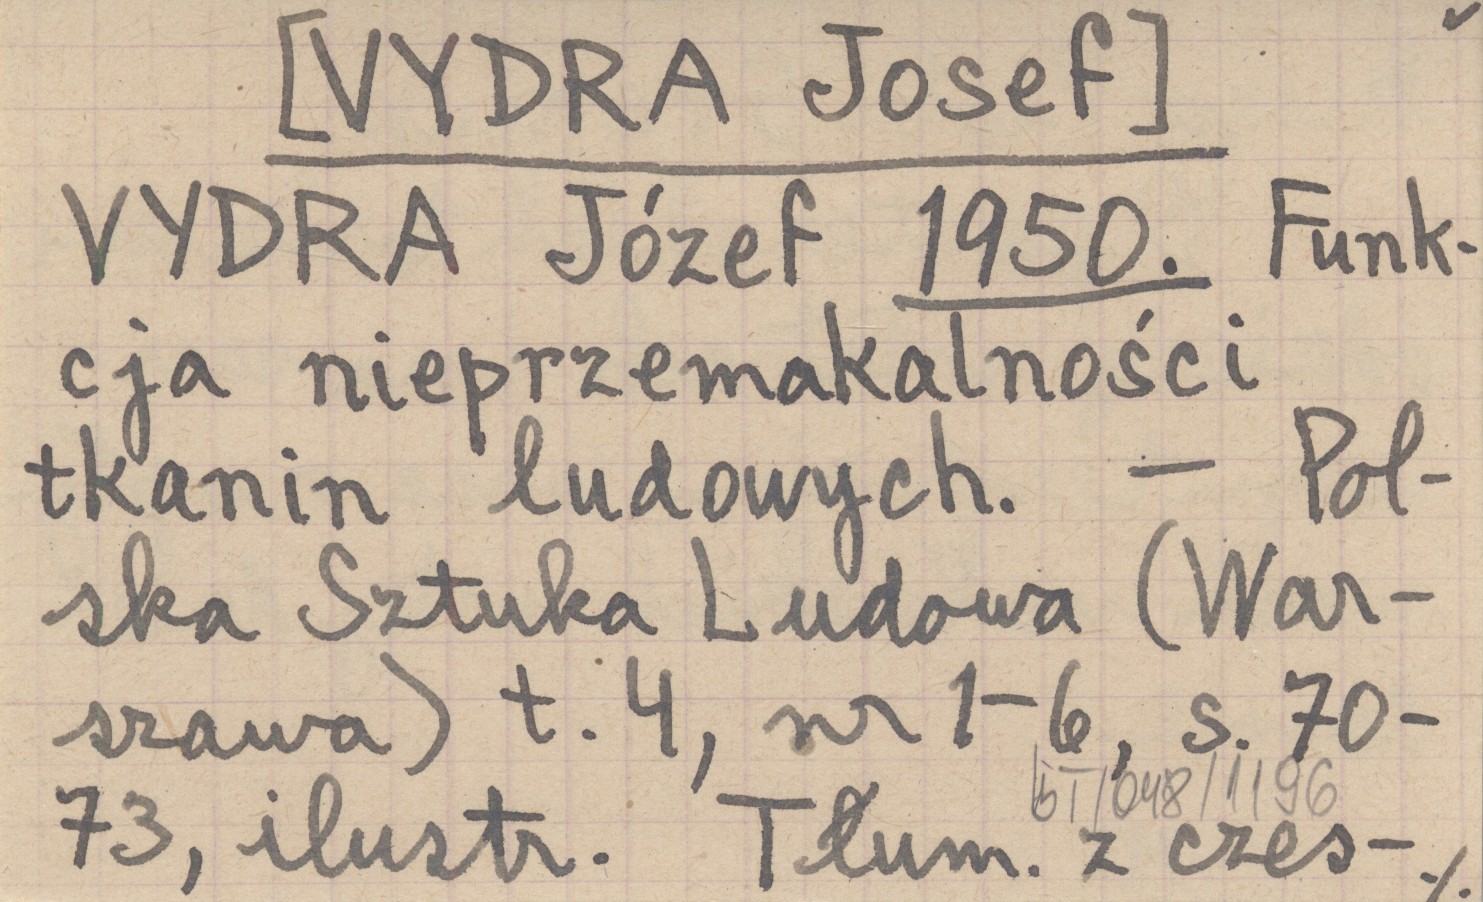 [VYDRA Josef]
VYDRA Józef 1950. Funk-
cja nieprzemakalności
tkanin ludowych. – Pol-
ska Sztuka Ludowa (War-
szawa) t. 4, nr 1-6, s. 70-
73, ilustr. Tłum. z czes-
./.